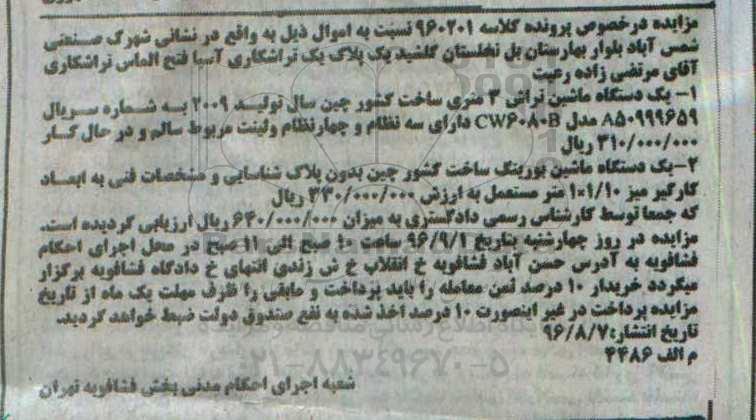 مزایده درخصوص پرونده کلاسه ۹۶۰۲۰۱ نسبت به اموال ذیل به واقع در نشانی شهرک صنعتی
شمس آباد بلوار بهارستان پل نخلستان گلشید یک پلاک یک تراشکاری آسیا فتح الماس تراشکاری
آقای مرتضی زاده رعیت
۱- یک دستگاه ماشین تراش ۳ متری ساخت کشور چین سال تولید ۲۰۰۹ به شماره سریال
A۵۰۹۹۹۶۵۹ مدل CW۶۰۸۰B دارای سه نظام و چهارنظام ولینت مربوط سالم و در حال کار
۳۱۰/۰۰۰/۰۰۰ ریال
۲-یک دستگاه ماشین بورینگ ساخت کشور چین بدون پلاک شناسایی و مشخصات فنی به ابعاد
کارگیر میز ۱/۱۰×۱ متر مستعمل به ارزش ۳۳۰/۰۰۰/۰۰۰ ریال
که جمعا توسط کارشناس رسمی دادگستری به میزان ۶۴۰/۰۰۰/۰۰۰ ریال ارزیابی گردیده است.
مزایده در روز چهارشنبه بتاریخ ۹۶/۹/۱ ساعت ۱۰ صبح الی ۱۱ صبح در محل اجرای احکام
فشافویه به آدرس حسن آباد فشافویه خ انقلاب خ ش زندی انتهای خ دادگاه فشافویه برگزار
میگردد خریدار ۱۰ درصد ثمن معامله را باید پرداخت و مابقی را ظرف مهلت یک ماه از تاریخ
مزایده پرداخت در غیر اینصورت ۱۰ درصد اخذ شده به نفع صندوق دولت ضبط خواهد گردید.
تاریخ انتشار:۹۶/۸/۷
م الف ۴۴۸۶
شعبه اجرای احکام مدنی بخش فشافویه تهران
۰۲۱-۸۸۳۴۹۶۷۰-۵